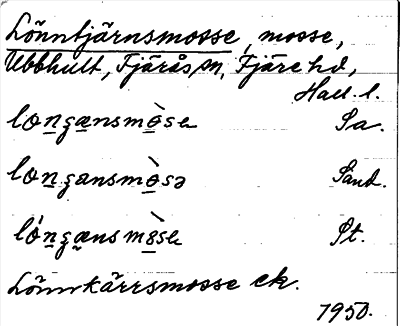 Lönntjärnsmosse, mosse,
Ubbhult, Fjärås sn, Fjäre hd,
Hall. l.
longænsmòse Sa.
longansmòsə Sand.
lóngænsmòse St.
Lönnkärrsmosse ek.
1950.